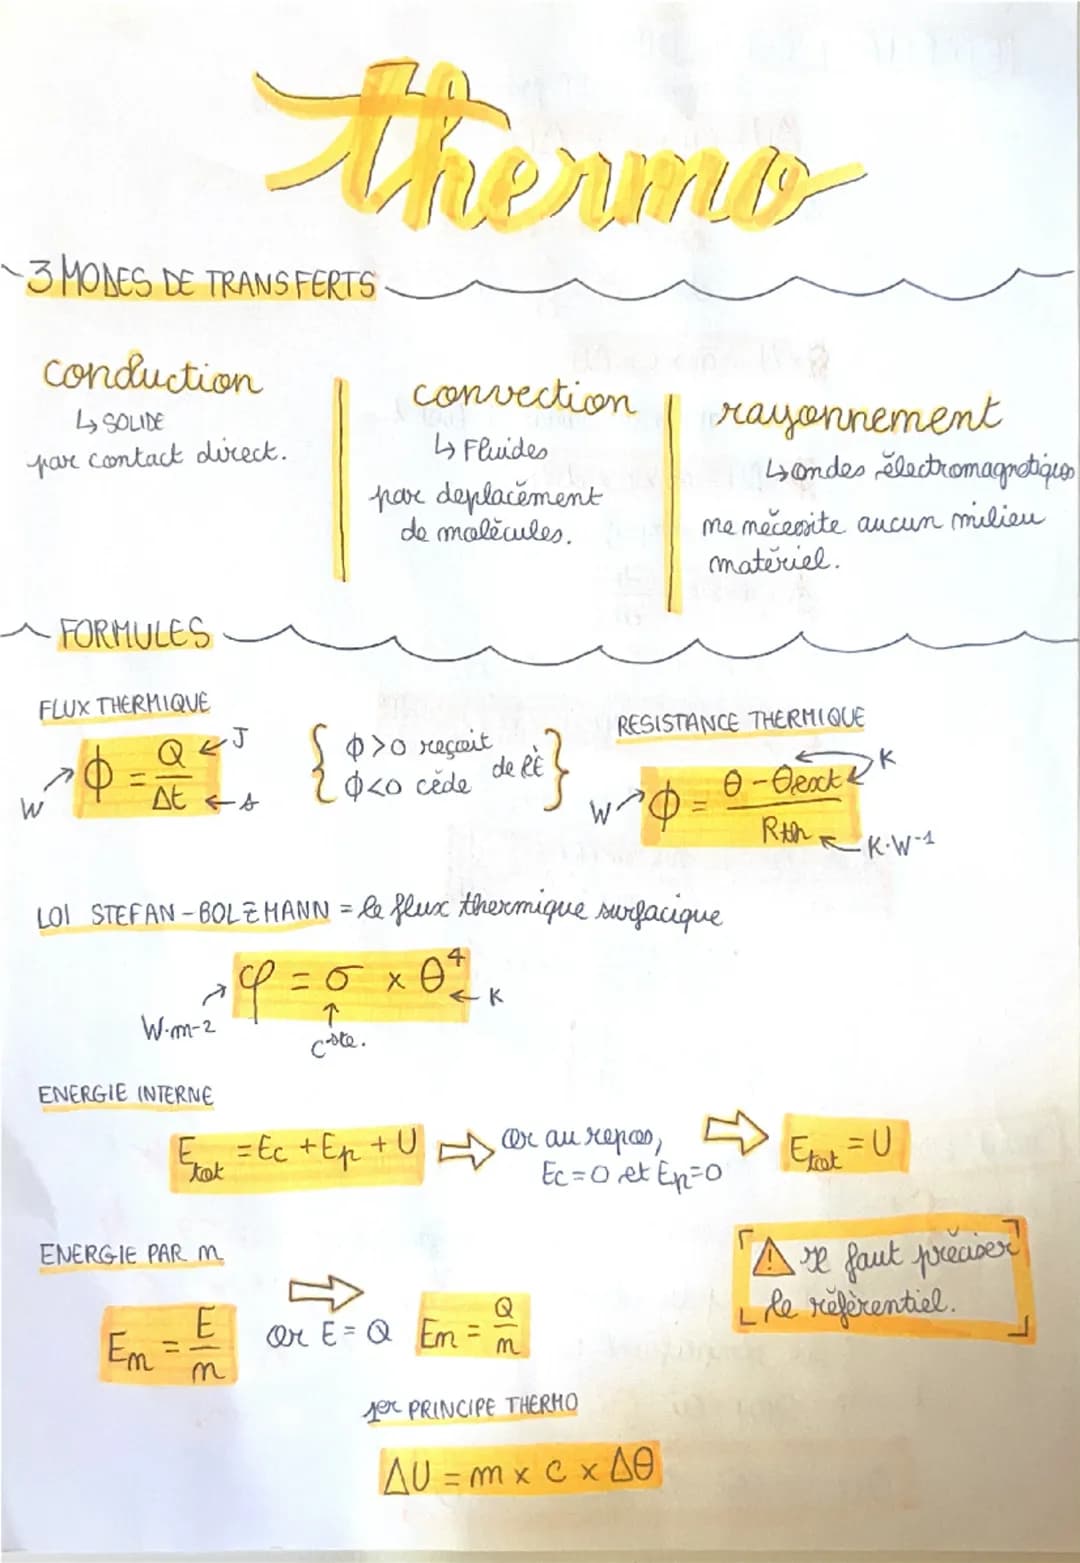 thermo
3 MODES DE TRANSFERTS
conduction
↳ SOLIDE
par contact direct.
convection
↳ Fluides
par deplacement
de molécules.
rayonnement
↳ ondes électromagnétiques
ne nécessite aucun milieu
matériel.
FORMULES
FLUX THERMIQUE
W → ϕ = Q / Δt ← J ← s
{ ϕ>0 reçoit
ϕ<0 cède } de l'É
RESISTANCE THERMIQUE
W → ϕ = θ - θext / Rth ← K ← K·W-1
LOI STEFAN-BOLZMANN = le flux thermique surfacique
φ = σ x θ⁴ ← K
W·m-2
cste.
ENERGIE INTERNE
Etot = Ec + Ep + U ⇨ Or au repos, ⇨ Etot = U
Ec = 0 et Ep = 0
ENERGIE PAR m
⚠ Il faut préciser
le référentiel.
Em = E / m ⇨ Or E = Q Em = Q / m
1er PRINCIPE THERMO
ΔU = m x c x Δθ